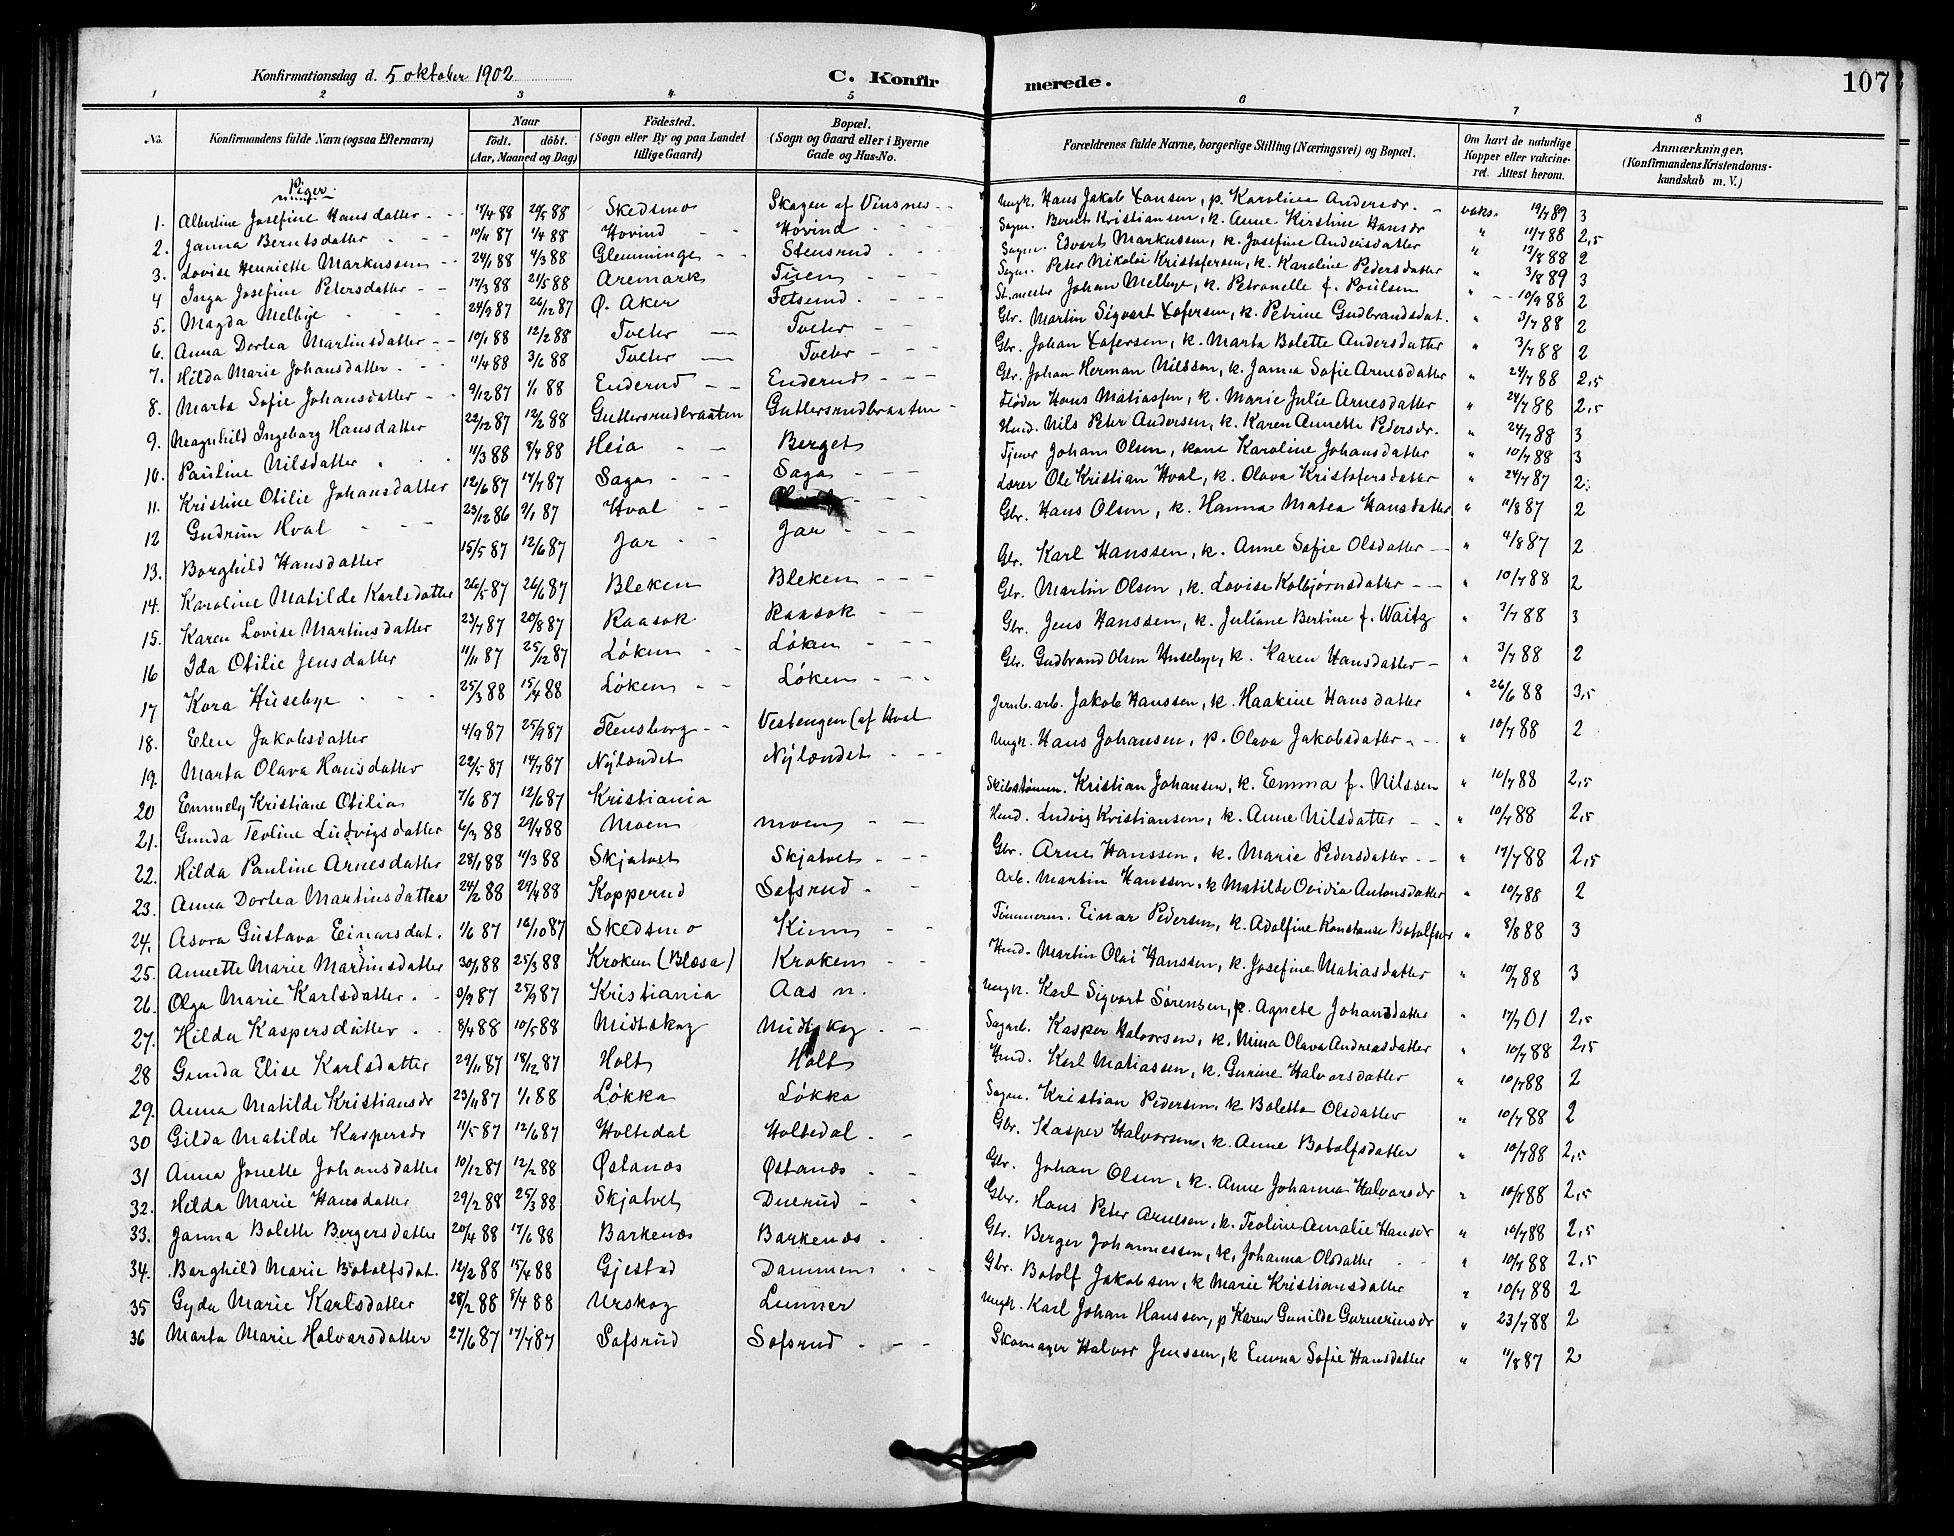 Konfirmationsdag d. 5 oktober 1902
C. Konfirmerede.
107
1 2 3 4 5 6 7 8
No.
Konfirmandens fulde Navn (ogsaa Efternavn)
Naar født. døbt. (Aar, Maaned og Dag)
Fødested. (Sogn eller By og paa Landet tillige Gaard)
Bopæl. (Sogn og Gaard eller i Byerne Gade og Hus-No.
Forældrenes fulde Navne, borgerlige Stilling (Næringsvei) og Bopæl.
Om havt de naturlige Kopper eller vakcineret. Attest herom.
Anmærkninger. (Konfirmandens Kristendomskundskab m. V.)
Piger
1. Albertine Josefine Hansdatter 17/4 88 20/5 88 Skedsmo Skogen af Vinsnes Ungk. Hans Jakob Hansen, p. Karoline Andersdr. vaks. 19/7 89 3
2. Janna Berntsdatter 10/11 87 1/4 88 Hovind Hovind Sagm. Bernt Kristiansen, k. Anne Kirstine Hansdr " 11/7 88 2,5
3. Lovise Henriette Markussen 24/1 88 4/3 88 Glemminge Stensrud Sagm. Edvart Markussen, k. Josefine Andersdatter " 13/8 88 2
4 Inga Josefine Petersdatter 17/3 88 21/5 88 Aremark Tuen Sagm. Peter Nikolai Kristofersen, k. Karoline Pedersdatter " 3/8 89 3
5. Magda Melbye 24/9 87 26/12 87 Ø. Aker Fetsund St.mester Johan Melbye, k. Petronelle f. Poulsen " 10/9 88 2
6. Anna Dortea Martinsdatter 10/1 88 12/2 88 Tveter Tveter Gbr. Martin Sigvart Tofersen, k. Petrine Gudbrandsdat. " 3/7 88 2
7. Hilda Marie Johansdatter 11/4 88 3/6 88 Tveter Tveter Gbr. Johan Tofersen, k. Marta Bolette Andersdatter " 3/7 88 2
8. Marta Sofie Johansdatter 9/12 87 1/1 88 Enderud Enderud Gbr. Johan Herman Nilssen, k. Janna Sofie Arnesdatter " 24/7 88 2,5
9. Magnhild Ingeborg Hansdatter 22/12 87 12/2 88 Guttersrudbraaten Guttersrudbraaten Fløder Hans Matiassen, k. Marie Julie Arnesdatter " 24/7 88 2,5
10. Pauline Nilsdatter 11/3 88 8/4 88 Heia Berget Husd. Nils Peter Andersen, k. Karen Annette Pedersdr. " 24/7 88 3
11. Kristine Otilie Johansdatter 12/6 87 17/7 87 Saga Saga Tjener Johan Olsen, kone Karoline Johansdatter " 10/7 88 3
12 Gudrun Hval 23/12 86 9/1 87 Hval Lærer Ole Kristian Hval, k. Olava Kristofersdatter " 24/7 87 2
13. Borghild Hansdatter 15/5 87 12/6 87 Jar Jar Gbr. Hans Olsen, k. Hanna Matea Hansdatter " 11/8 87 2
14. Karoline Matilde Karlsdatter 26/5 87 26/6 87 Bleken Bleken Gbr. Karl Hanssen, k. Anne Sofie Olsdatter " 4/8 87 2
15. Karen Lovise Martinsdatter 23/7 87 20/8 87 Raasok Raasok Gbr. Martin Olsen, k. Lovise Kolbjørnsdatter " 10/7 88 2
16 Ida Otilie Jensdatter 11/11 87 25/12 87 Løken Løken Gbr. Jens Hanssen, k. Juliane Bertine f. Waitz " 3/7 88 3
17 Kora Husebye 25/3 88 15/4 88 Løken Løken Gbr. Gudbrand Olsen Husebye, k. Karen Hansdatter " 3/7 88 2
18. Elen Jakobsdatter 4/9 87 25/9 87 Flensborg Vestengen (af Hval Jernb.arb. Jakob Hanssen, k. Haakine Hansdatter " 26/6 88 3,5
19. Marta Olava Hansdatter 22/5 87 14/7 87 Nylændet Nylændet Ungk. Hans Johansen, p. Olava Jakobsdatter " 10/7 88 2
20 Emmely Kristiane Otilia 7/6 87 12/6 87 Kristiania Skibstømm. Kristian Johansen, k. Emma f. Nilssen " 10/7 88 2,5
21. Gunda Teoline Ludvigsdatter 6/3 88 29/4 88 Moen Moen Husd. Ludvig Kristiansen, k. Anne Nilsdatter " 10/7 88 2,5
22. Hilda Pauline Arnesdatter 28/1 88 11/3 88 Skjatvet Skjatvet Gbr. Arne Hanssen, k. Marie Pedersdatter " 17/7 88 2,5
23. Anna Dortea Martinsdatter 24/2 88 29/4 88 Kopperud Sofsrud Arb. Martin Hanssen, k Matilde Ovidia Antonsdatter " 10/7 88 2
24. Asora Gustava Einarsdat. 1/6 87 16/10 87 Skedsmo Kinn Tømmerm. Einar Pedersen, k. Adolfine Konstanse Botolfsdr " 8/8 88 3
25. Annette Marie Martinsdatter 30/1 88 25/3 88 Kroken (Blæsa) Kroken Husd. Martin Olai Hanssen, k. Josefine Matiasdatter " 10/7 88 3
26. Olga Marie Karlsdatter 9/7 87 25/9 87 Kristiania Aas n. Ungk. Karl Sigvart Sørensen, p. Agnete Johansdatter " 17/7 01 2,5
27. Hilda Kaspersdatter 8/4 88 10/5 88 Midtskog Midtskog Sagarb. Kasper Halvorsen, k. Mina Olava Andreasdatter " 10/7 88 2,5
28 Gunda Elise Karlsdatter 29/11 87 18/12 87 Holt Holt Husd. Karl Matiassen, k. Gurine Halvorsdatter " 10/7 88 2
29. Anna Matilde Kristiansdr 23/11 87 1/1 88 Løkka Løkka Sagm. Kristian Pedersen, k. Bolette Olsdatter " 10/7 88 2
30 Gilda Matilde Kaspersdr 11/5 87 12/6 87 Holtedal Holtedal Gbr. Kasper Halvorsen, k. Anne Botolfsdatter " 10/7 88 2,5
31 Anna Jonette Johansdatter 10/12 87 12/2 88 Østanæs Østanæs Gbr. Johan Olsen, k. Anne Johanna Halvorsdr " 10/7 88 2,5
32. Hilda Marie Hansdatter 29/2 88 25/3 88 Skjatvet Duerud Gbr. Hans Peter Arnesen, k. Teoline Amalie Hansdr " 10/7 88 2,5
33. Janna Bolette Bergersdatter 20/4 88 17/6 88 Barkenæs Barkenæs Gbr. Berger Johannessen, k. Johanna Olsdatter " 10/7 88 2,5
34. Borghild Marie Botolfsdat. 12/2 88 15/4 88 Gjestad Dammen Gbr. Botolf Jakobsen, k Marie Kristiansdatter " 10/7 88 2
35 Gyda Marie Karlsdatter 28/2 88 8/4 88 Urskog Lunner Ungk. Karl Johan Hanssen, p Karen Gunilde Gunneriusdr " 23/7 88 2
36 Marta Marie Halvorsdatter 27/6 87 17/7 87 Sofsrud Sofsrud Skomager Halvor Jenssen, k Emma Sofie Hansdatter " 11/8 87 2